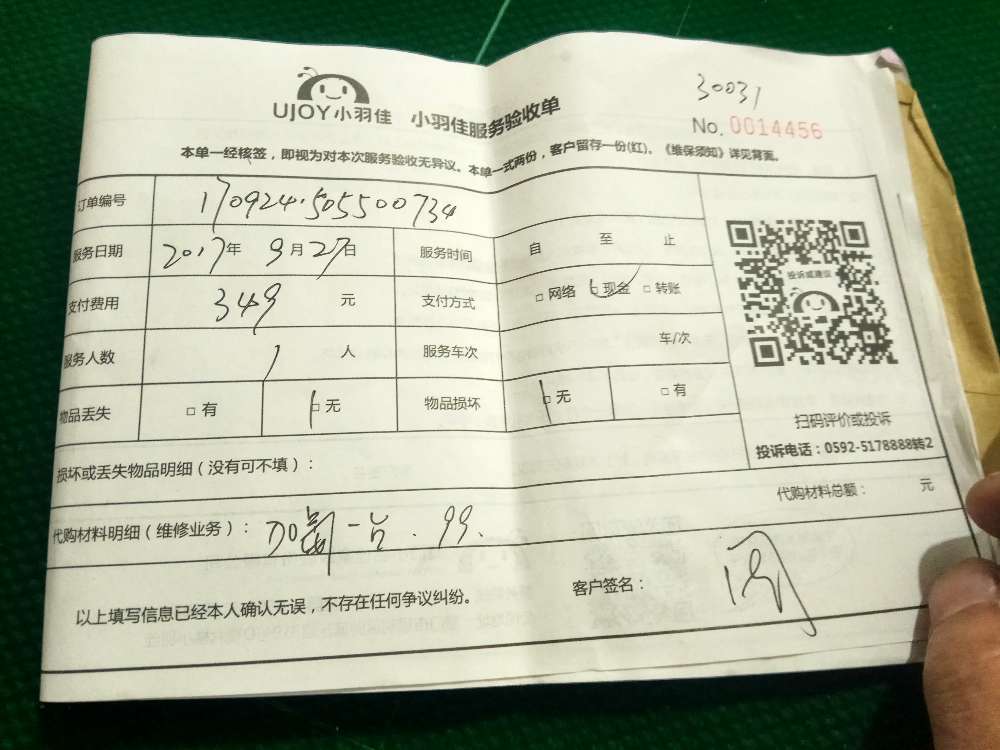 30031
UJOY小羽佳 小羽佳服务验收单
No. 0014456
本单一经核签,即视为对本次服务验收无异议。本单一式两份,客户留存一份(红)。《维保须知》详见背面。
订单编号 170924.505500734
服务日期 2017年 9月27日 服务时间 自 至 止
支付费用 349 元 支付方式 □ 网络 □ 现金 □ 转账
服务人数 1 人 服务车次 车/次
物品丢失 □ 有 □ 无 物品损坏 □ 无 □ 有
投诉或建议
扫码评价或投诉
投诉电话:0592-5178888转2
损坏或丢失物品明细(没有可不填):
代购材料总额: 元
代购材料明细(维修业务): 加 一台. 99.
以上填写信息已经本人确认无误,不存在任何争议纠纷。 客户签名: